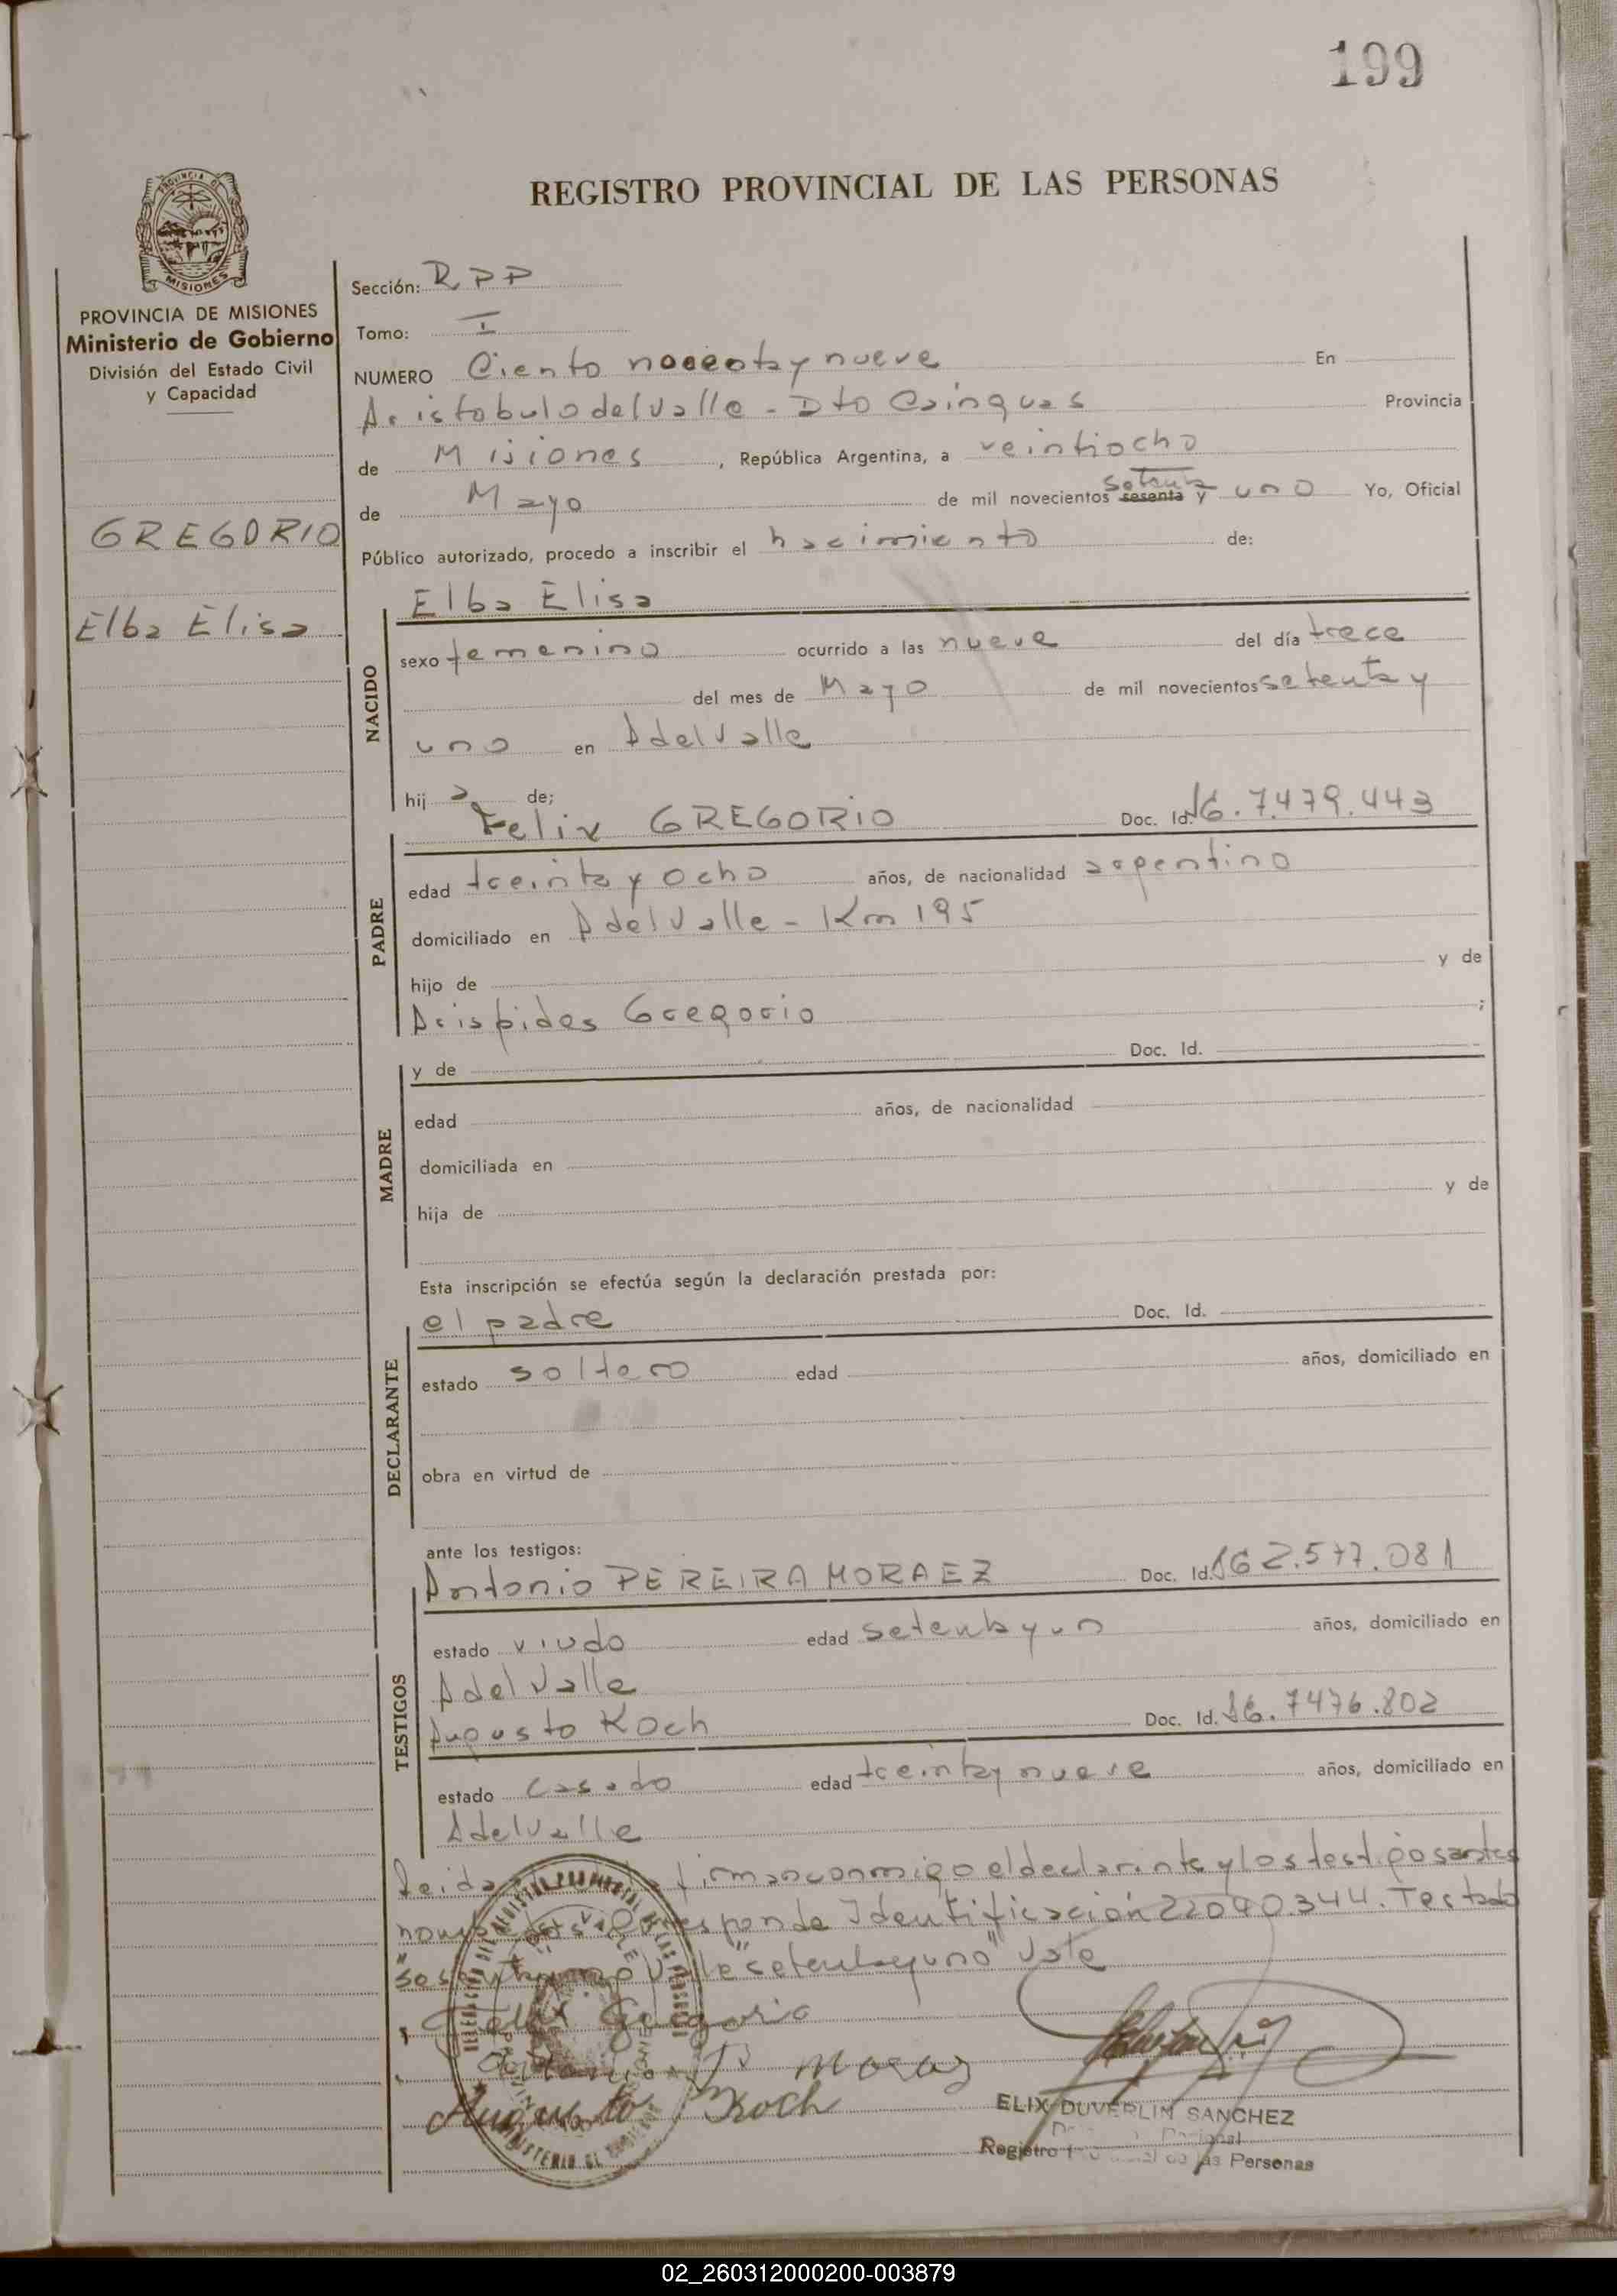 199
REGISTRO PROVINCIAL DE LAS PERSONAS
PROVINCIA DE MISIONES
Ministerio de Gobierno
División del Estado Civil
y Capacidad
GREGORIO
Elba Elisa
Sección: RPP
Tomo: I
NUMERO Ciento noventa y nueve En
Aristobulo del Valle - Dto Cainguas Provincia
de Misiones, República Argentina, a veintiocho
de Mayo de mil novecientos sesenta setenta y uno Yo, Oficial
Público autorizado, procedo a inscribir el nacimiento de:
NACIDO
Elba Elisa
sexo femenino ocurrido a las nueve del día trece
del mes de Mayo de mil novecientos setenta y
uno en A del Valle
hija de;
PADRE
Felix GREGORIO Doc. Id. 7.479.443
edad treinta y ocho años, de nacionalidad argentino
domiciliado en A del Valle - Km 195
hijo de y de
Arispides Gregorio ;
MADRE
y de Doc. Id.
edad años, de nacionalidad
domiciliada en
hija de y de
Esta inscripción se efectúa según la declaración prestada por:
DECLARANTE
el padre Doc. Id.
estado soltero edad años, domiciliado en
obra en virtud de
ante los testigos:
TESTIGOS
Antonio PEREIRA MORAEZ Doc. Id.
estado viudo edad setenta y un años, domiciliado en
A del Valle
Augusto Koch Doc. Id. 7476.802
estado casado edad treinta y nueve años, domiciliado en
A del Valle
Leida firman conmigo el declarante y los testigos antes
Identificación 22040.344. Testado
Vale "setenta y uno" Vale
Felix Gregorio
Antonio P Moraz
Augusto Koch
ELIX DUVERLIM SANCHEZ
Registro de las Personas
02_260312000200-003879